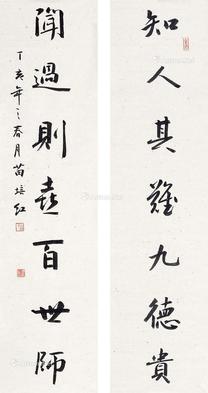 知人其難九德貴
聞過則喜百世師
丁亥年之春月苗培红